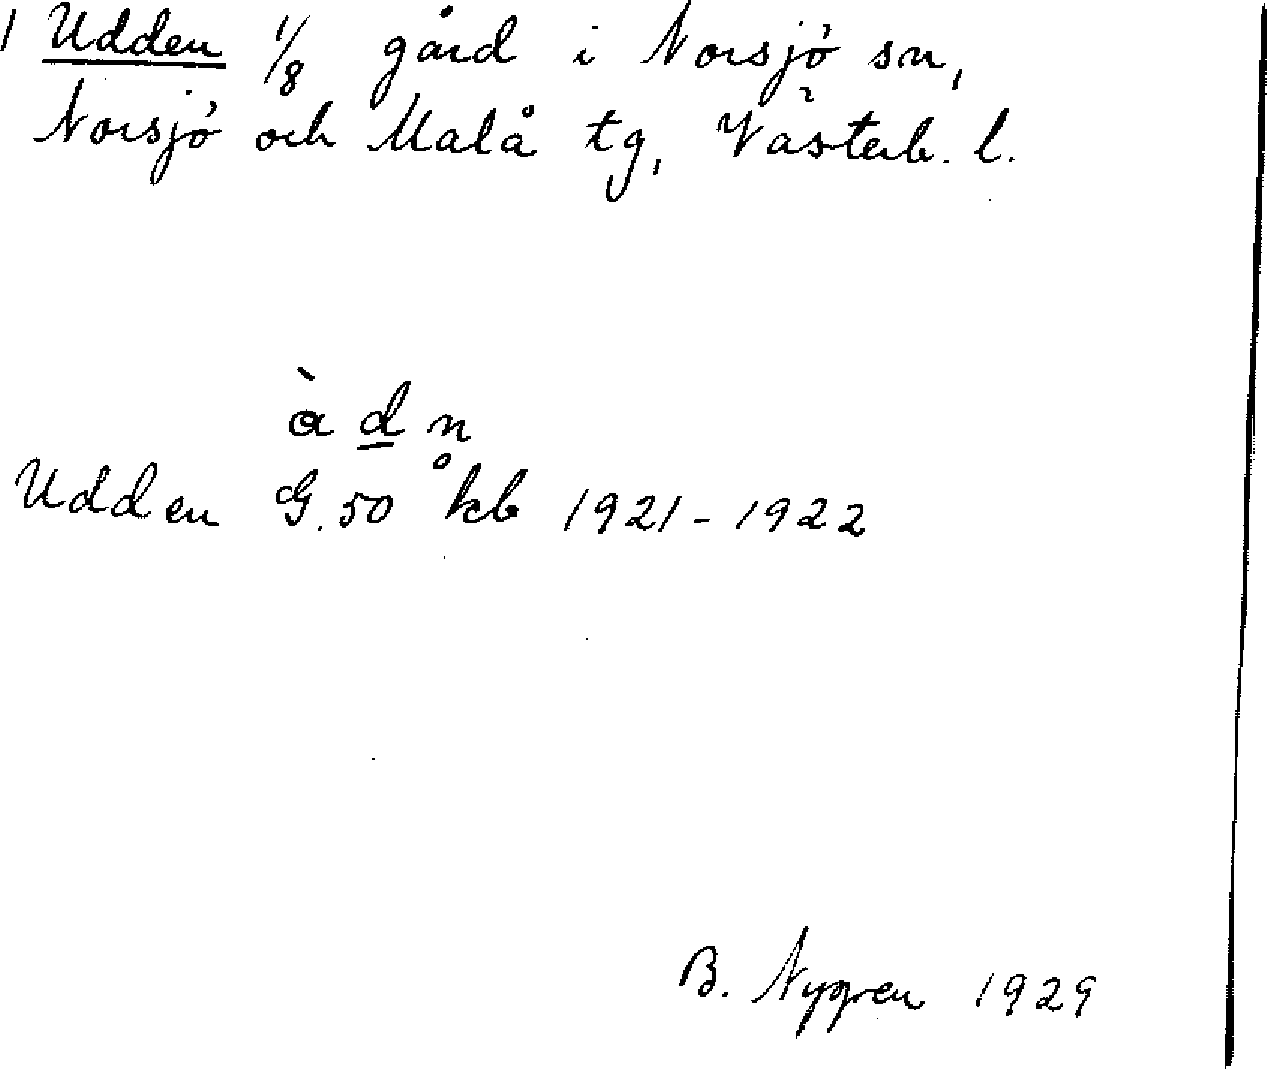 1 Udden 1/8 gård i Norsjö sn,
Norsjö och Malå tg, Västerb. l.
à d n
Udden G. 50 kb 1921-1922
B. Nygren 1929